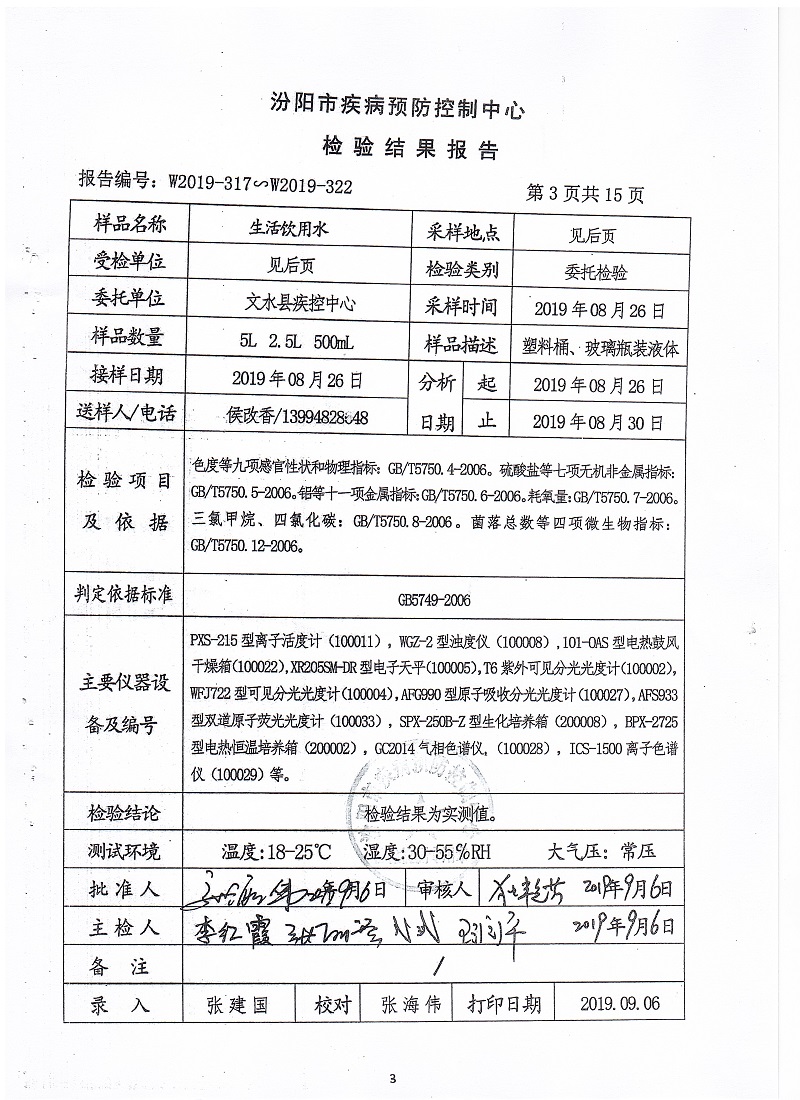 汾阳市疾病预防控制中心
检验结果报告
报告编号：W2019-317∽W2019-322
第 3 页共 15 页
样品名称 生活饮用水 采样地点 见后页
受检单位 见后页 检验类别 委托检验
委托单位 文水县疾控中心 采样时间 2019 年 08 月 26 日
样品数量 5L 2.5L 500mL 样品描述 塑料桶、玻璃瓶装液体
接样日期 2019 年 08 月 26 日 分析 起 2019 年 08 月 26 日
送样人/电话 侯改香/13994828 48 日期 止 2019 年 08 月 30 日
检验项目
及依据
色度等九项感官性状和物理指标：GB/T5750.4-2006。硫酸盐等七项无机非金属指标：
GB/T5750.5-2006。铝等十一项金属指标：GB/T5750.6-2006。耗氧量：GB/T5750.7-2006。
三氯甲烷、四氯化碳：GB/T5750.8-2006。菌落总数等四项微生物指标：
GB/T5750.12-2006。
判定依据标准 GB5749-2006
主要仪器设
备及编号
PXS-215 型离子活度计（100011），WGZ-2 型浊度仪（100008）,101-OAS 型电热鼓风
干燥箱(100022),XR205SM-DR 型电子天平(100005),T6 紫外可见分光光度计(100002),
WFJ722 型可见分光光度计(100004),AFG990 型原子吸收分光光度计(100027),AFS933
型双道原子荧光光度计（100033），SPX-250B-Z 型生化培养箱（200008），BPX-2725
型电热恒温培养箱（200002），GC2014 气相色谱仪，（100028），ICS-1500 离子色谱
仪（100029）等。
检验结论 检验结果为实测值。
测试环境 温度:18-25℃ 湿度:30-55%RH 大气压：常压
批准人 年9月6日 审核人 2019年9月6日
主检人 李红霞 2019年9月6日
备注 /
录入 张建国 校对 张海伟 打印日期 2019.09.06
3